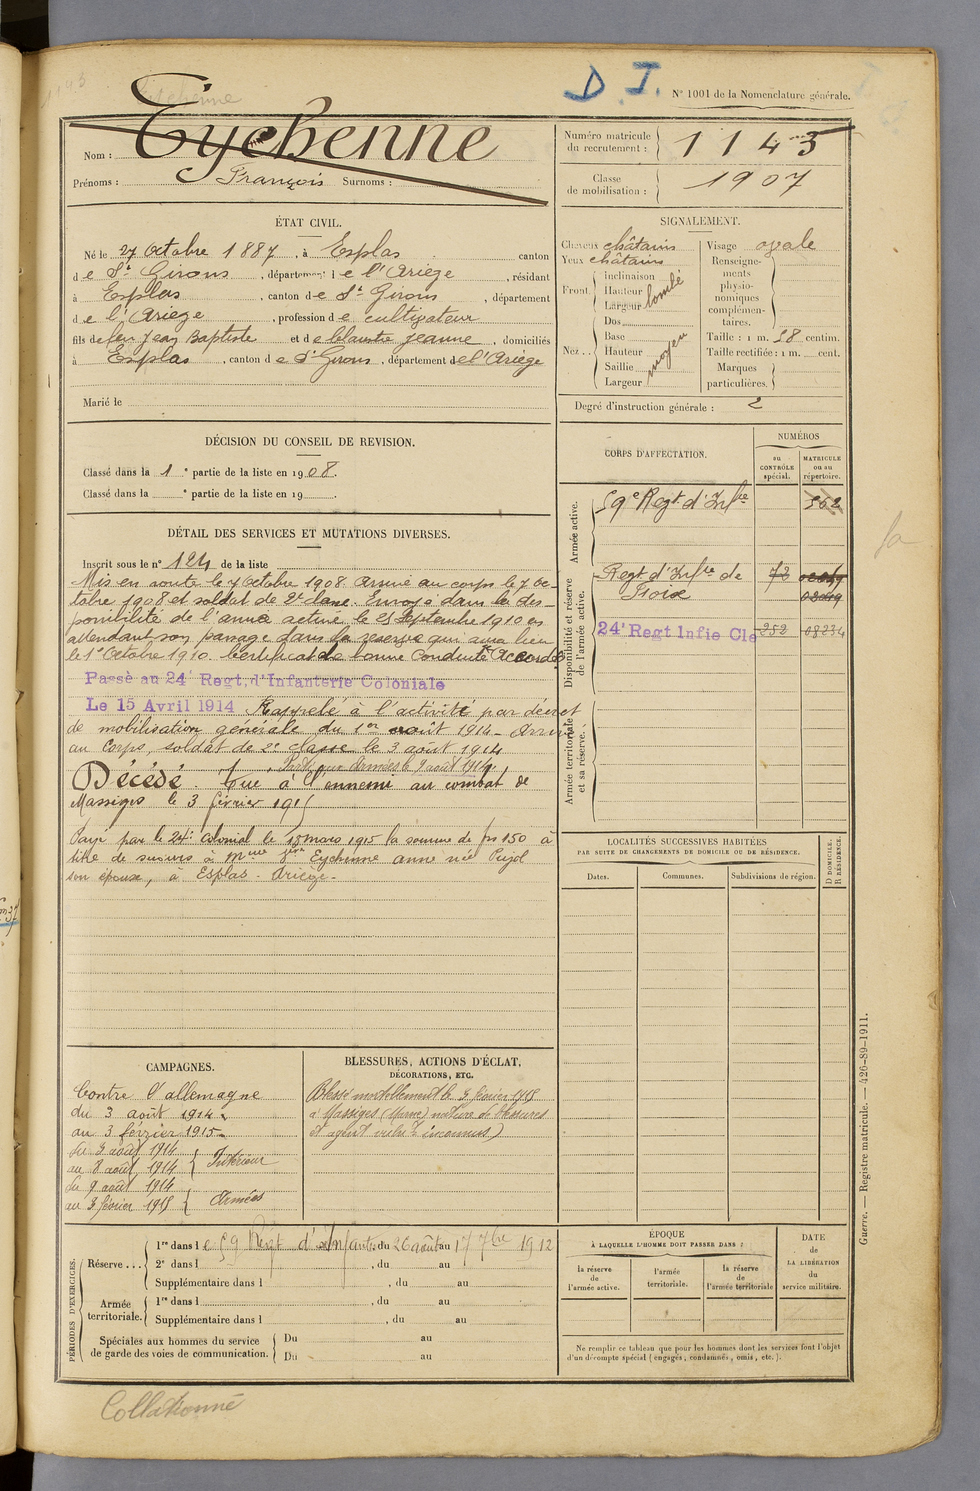 D. I.
N° 1001 de la Nomenclature générale.
Eychenne
Nom : Eychenne
Prénoms : François Surnoms :
Numéro matricule du recrutement : 1143
Classe de mobilisation : 1907
ÉTAT CIVIL.
Né le 27 Octobre 1887, à Esplas canton
de St Girons, département de l'Ariège, résidant
à Esplas, canton de St Girons, département
de l'Ariège, profession de cultivateur
fils de feu Jean Baptiste et de Jeanne, domiciliés
à Esplas, canton de St Girons, département de l'Ariège
Marié le
SIGNALEMENT.
Cheveux châtains
Yeux châtains
Front. Inclinaison
Hauteur
Largeur bombé
Nez... Dos
Base
Hauteur
Saillie
Largeur moyen
Visage ovale
Renseignements physionomiques complémentaires.
Taille : 1 m. 58 centim.
Taille rectifiée : 1 m. cent.
Marques particulières.
Degré d'instruction générale : 2
DÉCISION DU CONSEIL DE REVISION.
Classé dans la 1e partie de la liste en 1908.
Classé dans la e partie de la liste en 19 .
CORPS D'AFFECTATION.
NUMÉROS
au CONTRÔLE spécial.
MATRICULE ou au répertoire.
Armée active.
59e Regt d'Infie
Disponibilité et réserve de l'armée active.
Regt d'Infie de Foix 72
24e Regt Infie Cle 252 08234
Armée territoriale et sa réserve.
DÉTAIL DES SERVICES ET MUTATIONS DIVERSES.
Inscrit sous le n° 124 de la liste
Mis en route le 7 Octobre 1908. Arrivé au corps le 7 Oc-
tobre 1908 et soldat de 2e classe. Envoyé dans la dis-
ponibilité de l'armée active le 25 Septembre 1910 en
attendant son passage dans la réserve qui aura lieu
le 1er Octobre 1910. Certificat de bonne Conduite Accordé
Passé au 24e Regt. d'Infanterie Coloniale
Le 15 Avril 1914 Rappelé à l'activité par décret
de mobilisation générale du 1er août 1914 - Arrivé
au Corps, soldat de 2e classe le 3 août 1914
Parti aux Armées le 9 août 1914.
Décédé. Tué à l'ennemi au combat de
Massiges le 3 février 1915
Payé par le 24e colonial le 18 mars 1915 la somme de frs 150 à
titre de secours à Mme Eychenne Anne née Pujol
son épouse, à Esplas - Ariège -
LOCALITÉS SUCCESSIVES HABITÉES
PAR SUITE DE CHANGEMENTS DE DOMICILE OU DE RÉSIDENCE.
Dates. Communes. Subdivisions de région.
D DOMICILE.
R RÉSIDENCE.
CAMPAGNES.
Contre l'allemagne
du 3 août 1914
au 3 février 1915
du 3 août 1914
au 8 août 1914 Intérieur
du 9 août 1914
au 3 février 1915 Armées
BLESSURES, ACTIONS D'ÉCLAT,
DÉCORATIONS, ETC.
Blessé mortellement le 3 février 1915
à Massiges (Marne) nature de blessures
et agent inconnus)
PÉRIODES D'EXERCICES.
Réserve... 1re dans le 59 Regt d'Infantie du 26 août au 17 7bre 1912
2e dans l , du au
Supplémentaire dans l , du au
Armée territoriale. 1re dans l , du au
Supplémentaire dans l , du au
Spéciales aux hommes du service de garde des voies de communication. Du au
Du au
ÉPOQUE
À LAQUELLE L'HOMME DOIT PASSER DANS :
la réserve de l'armée active.
l'armée territoriale.
la réserve de l'armée territoriale
DATE de LA LIBÉRATION du service militaire.
Ne remplir ce tableau que pour les hommes dont les services font l'objet
d'un décompte spécial (engagés, condamnés, omis, etc.).
Guerre. — Registre matricule. — 426-89-1911.
Collationné